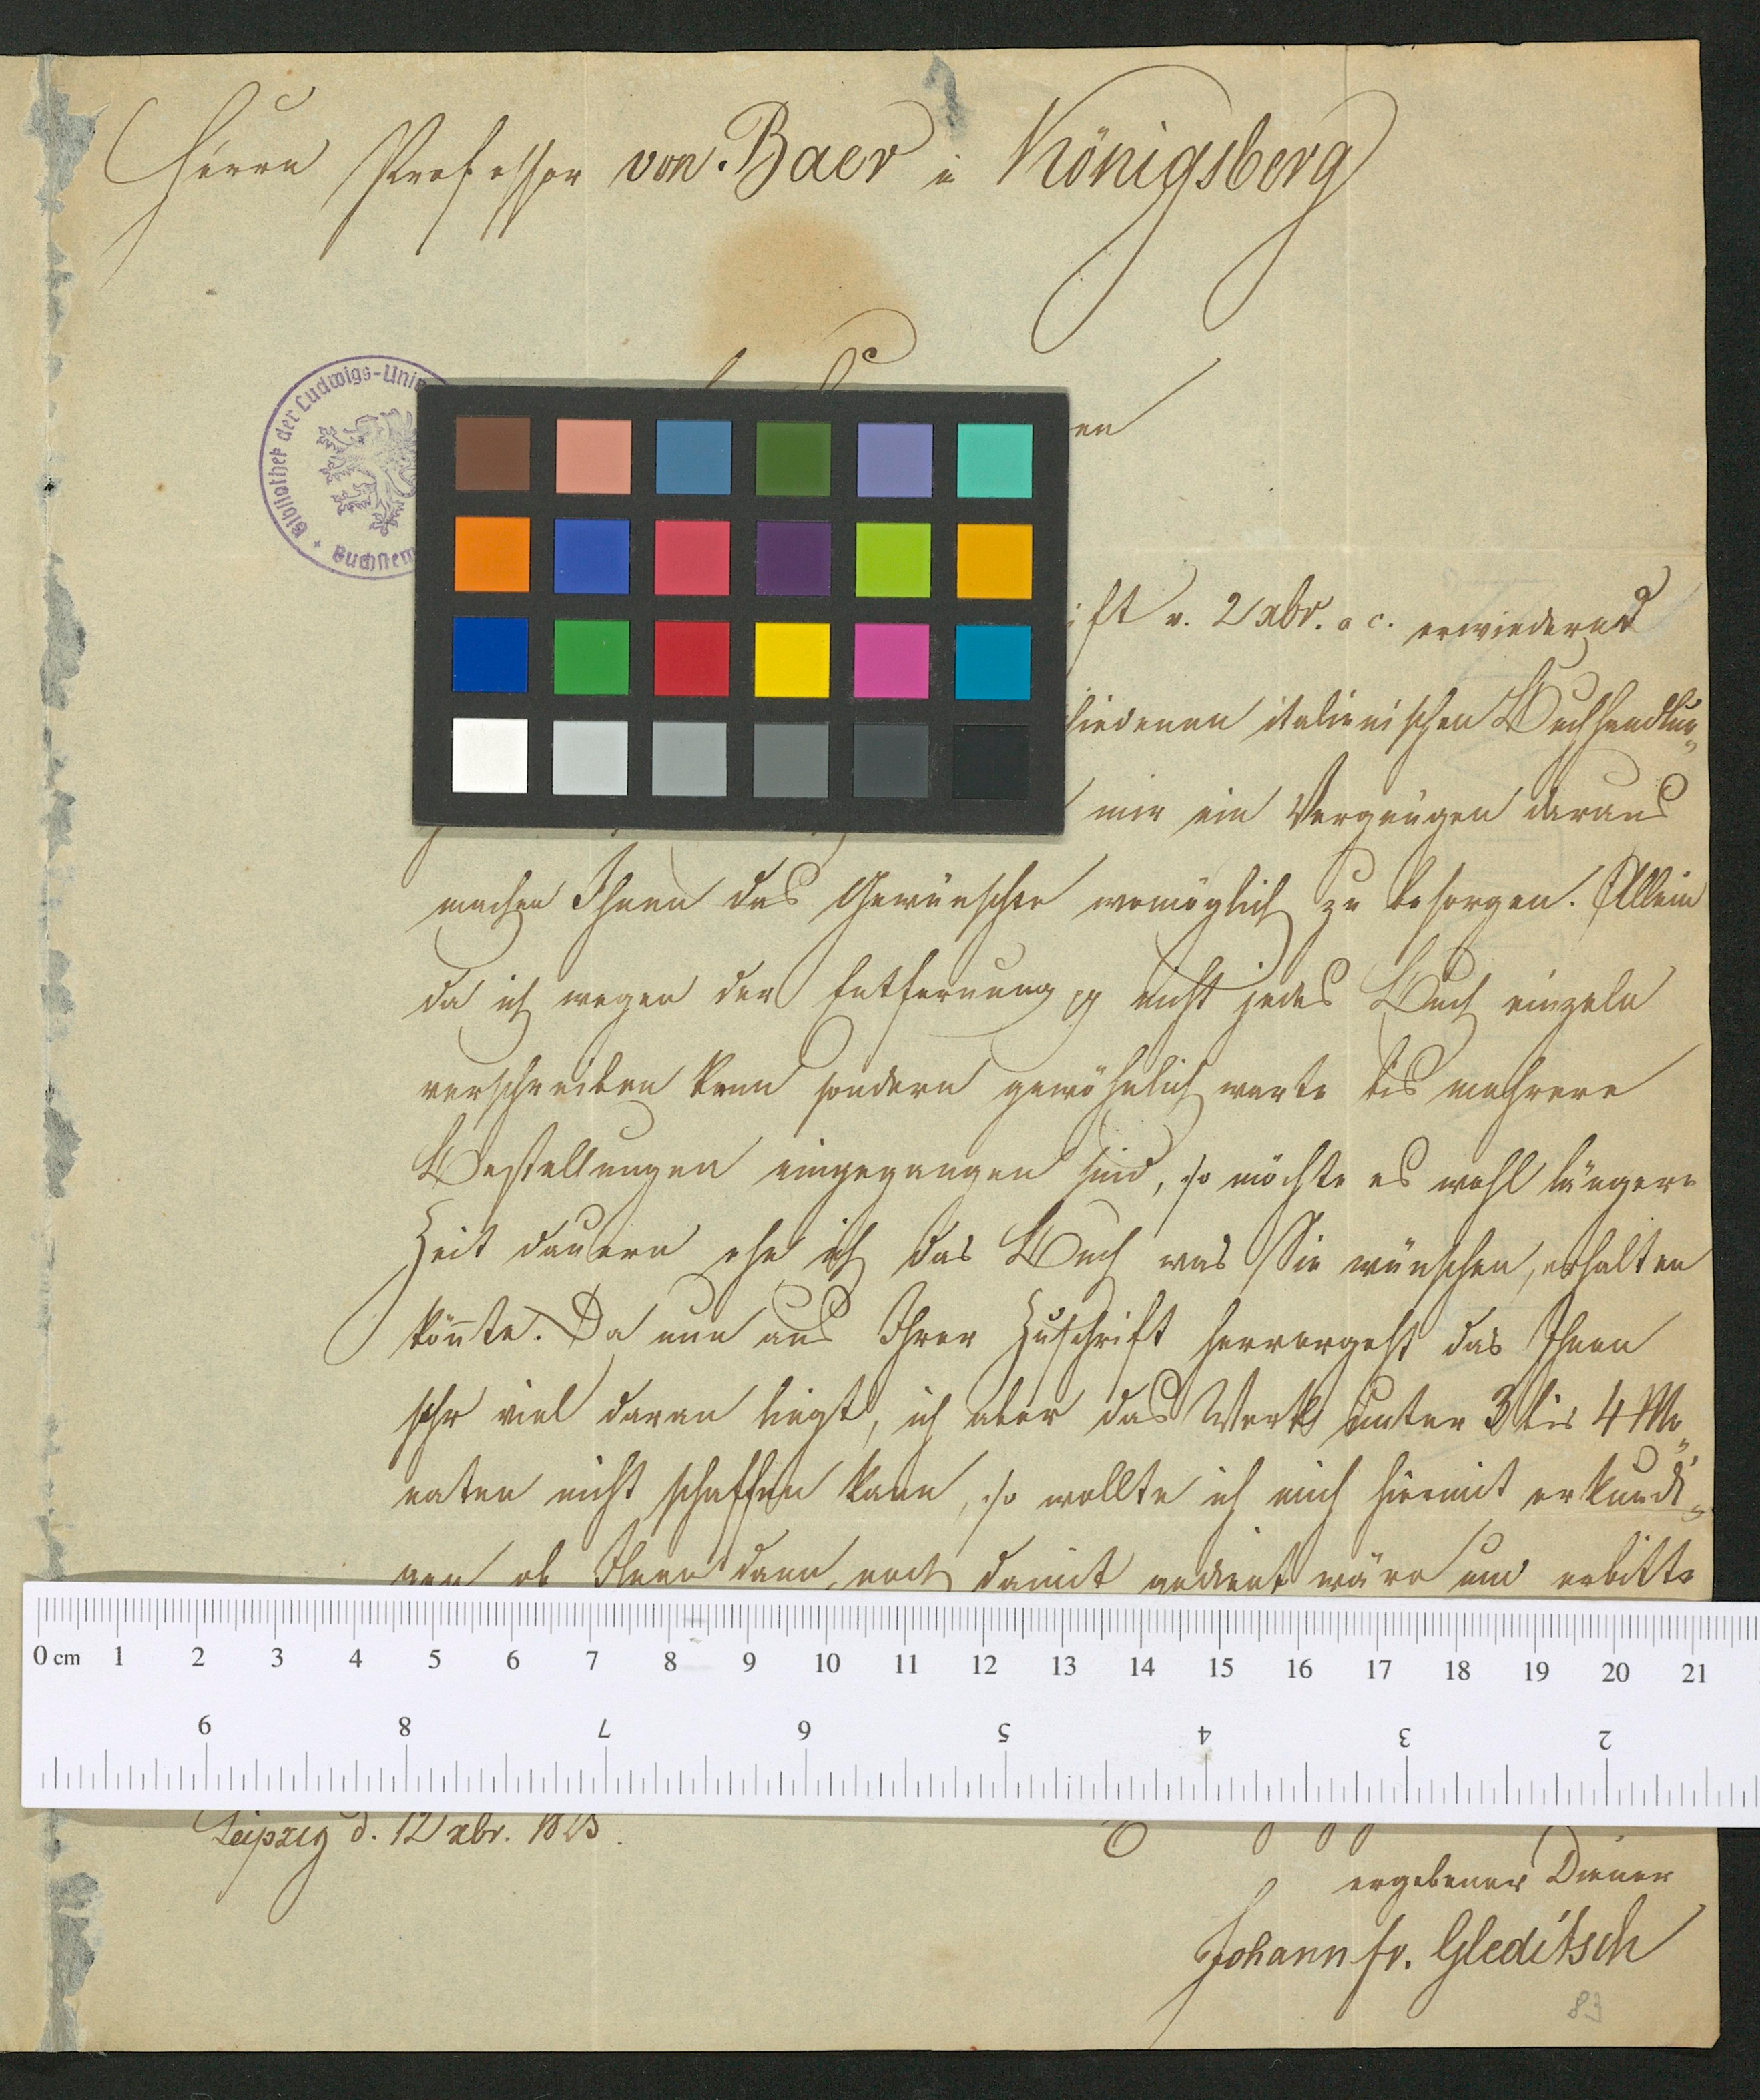 Herrn Professor von Baer in Königsberg
Bibliothek der Ludwigs-Uni
en
ift v. 2 xbr. a c. erwiedernd
hiedenen italienischen Buchhandlun„
mir ein Vergnügen daraus
machen Ihnen das Gewünschte womöglich zu besorgen. Allein
da ich wegen der Entfernung nicht jedes Buch einzeln
verschreiben kann sondern gewöhnlich warte bis mehrere
Bestellungen eingegangen sind, so möchte es wohl längere
Zeit dauern ehe ich das Buch was Sie wünschen, erhalten
könnte. Da nun aus Ihrer Zuschrift hervorgeht das Ihnen
sehr viel daran liegt, ich aber das Werk unter 3 bis 4 Mo„
naten nicht schaffen kann, so wollte ich mich hiermit erkundi„
gen ob Ihnen dann noch damit gedient wäre und erbitte
0 cm 1 2 3 4 5 6 7 8 9 10 11 12 13 14 15 16 17 18 19 20 21
9 8 7 6 5 4 3 2
Leipzig d. 12 xbr. 1825.
ergebener Diener
Johann Fr. Gleditsch
83